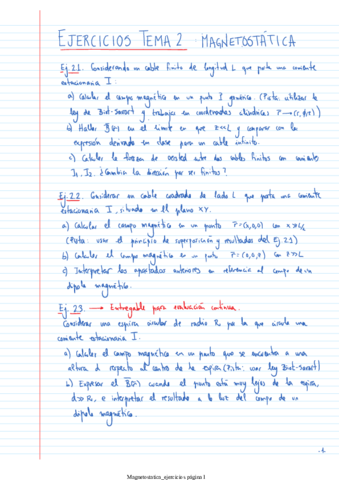 EJERCICIOS TEMA 2 · MAGNETOSTÁTICA
Ej 2.1. Considerando un cable finito de longitud L que porta una corriente
estacionaria I:
a) Calcular el campo magnético en un punto P genérico. (Pista: utilizar la
ley de Biot-Savart y trabajar en coordenadas cilíndricas
b) Hallar en el límite en que y comparar con la
expresión derivada en clase para un cable infinito.
c) Calcular la fuerza de entre dos cables finitos con corrientes
I1, I2. ¿Cambia la dirección por ser finitos?
Ej 2.2. Considerar un cable cuadrado de lado L que porta una corriente
estacionaria I, situado en el plano XY.
a) Calcular el campo magnético en un punto P=(x,0,0) con x>>L
(Pista: usar el principio de superposición y resultados del Ej 2.1)
b) Calcular el campo magnético en un punto P=(0,0,z) con z>>L
c) Interpretar los apartados anteriores en referencia al campo de un
dipolo magnético.
Ej. 2.3. → Entregable para evaluación continua.
Considerar una espira circular de radio R por la que circula una
corriente estacionaria I.
a) Calcular el campo magnético en un punto que se encuentra a una
altura d respecto al centro de la espira (Pista: usar ley Biot-Savart)
b) Expresar el cuando el punto está muy lejos de la espira,
e interpretar el resultado a la luz del campo de un
dipolo magnético.
Magnetostática_ejercicios página 1